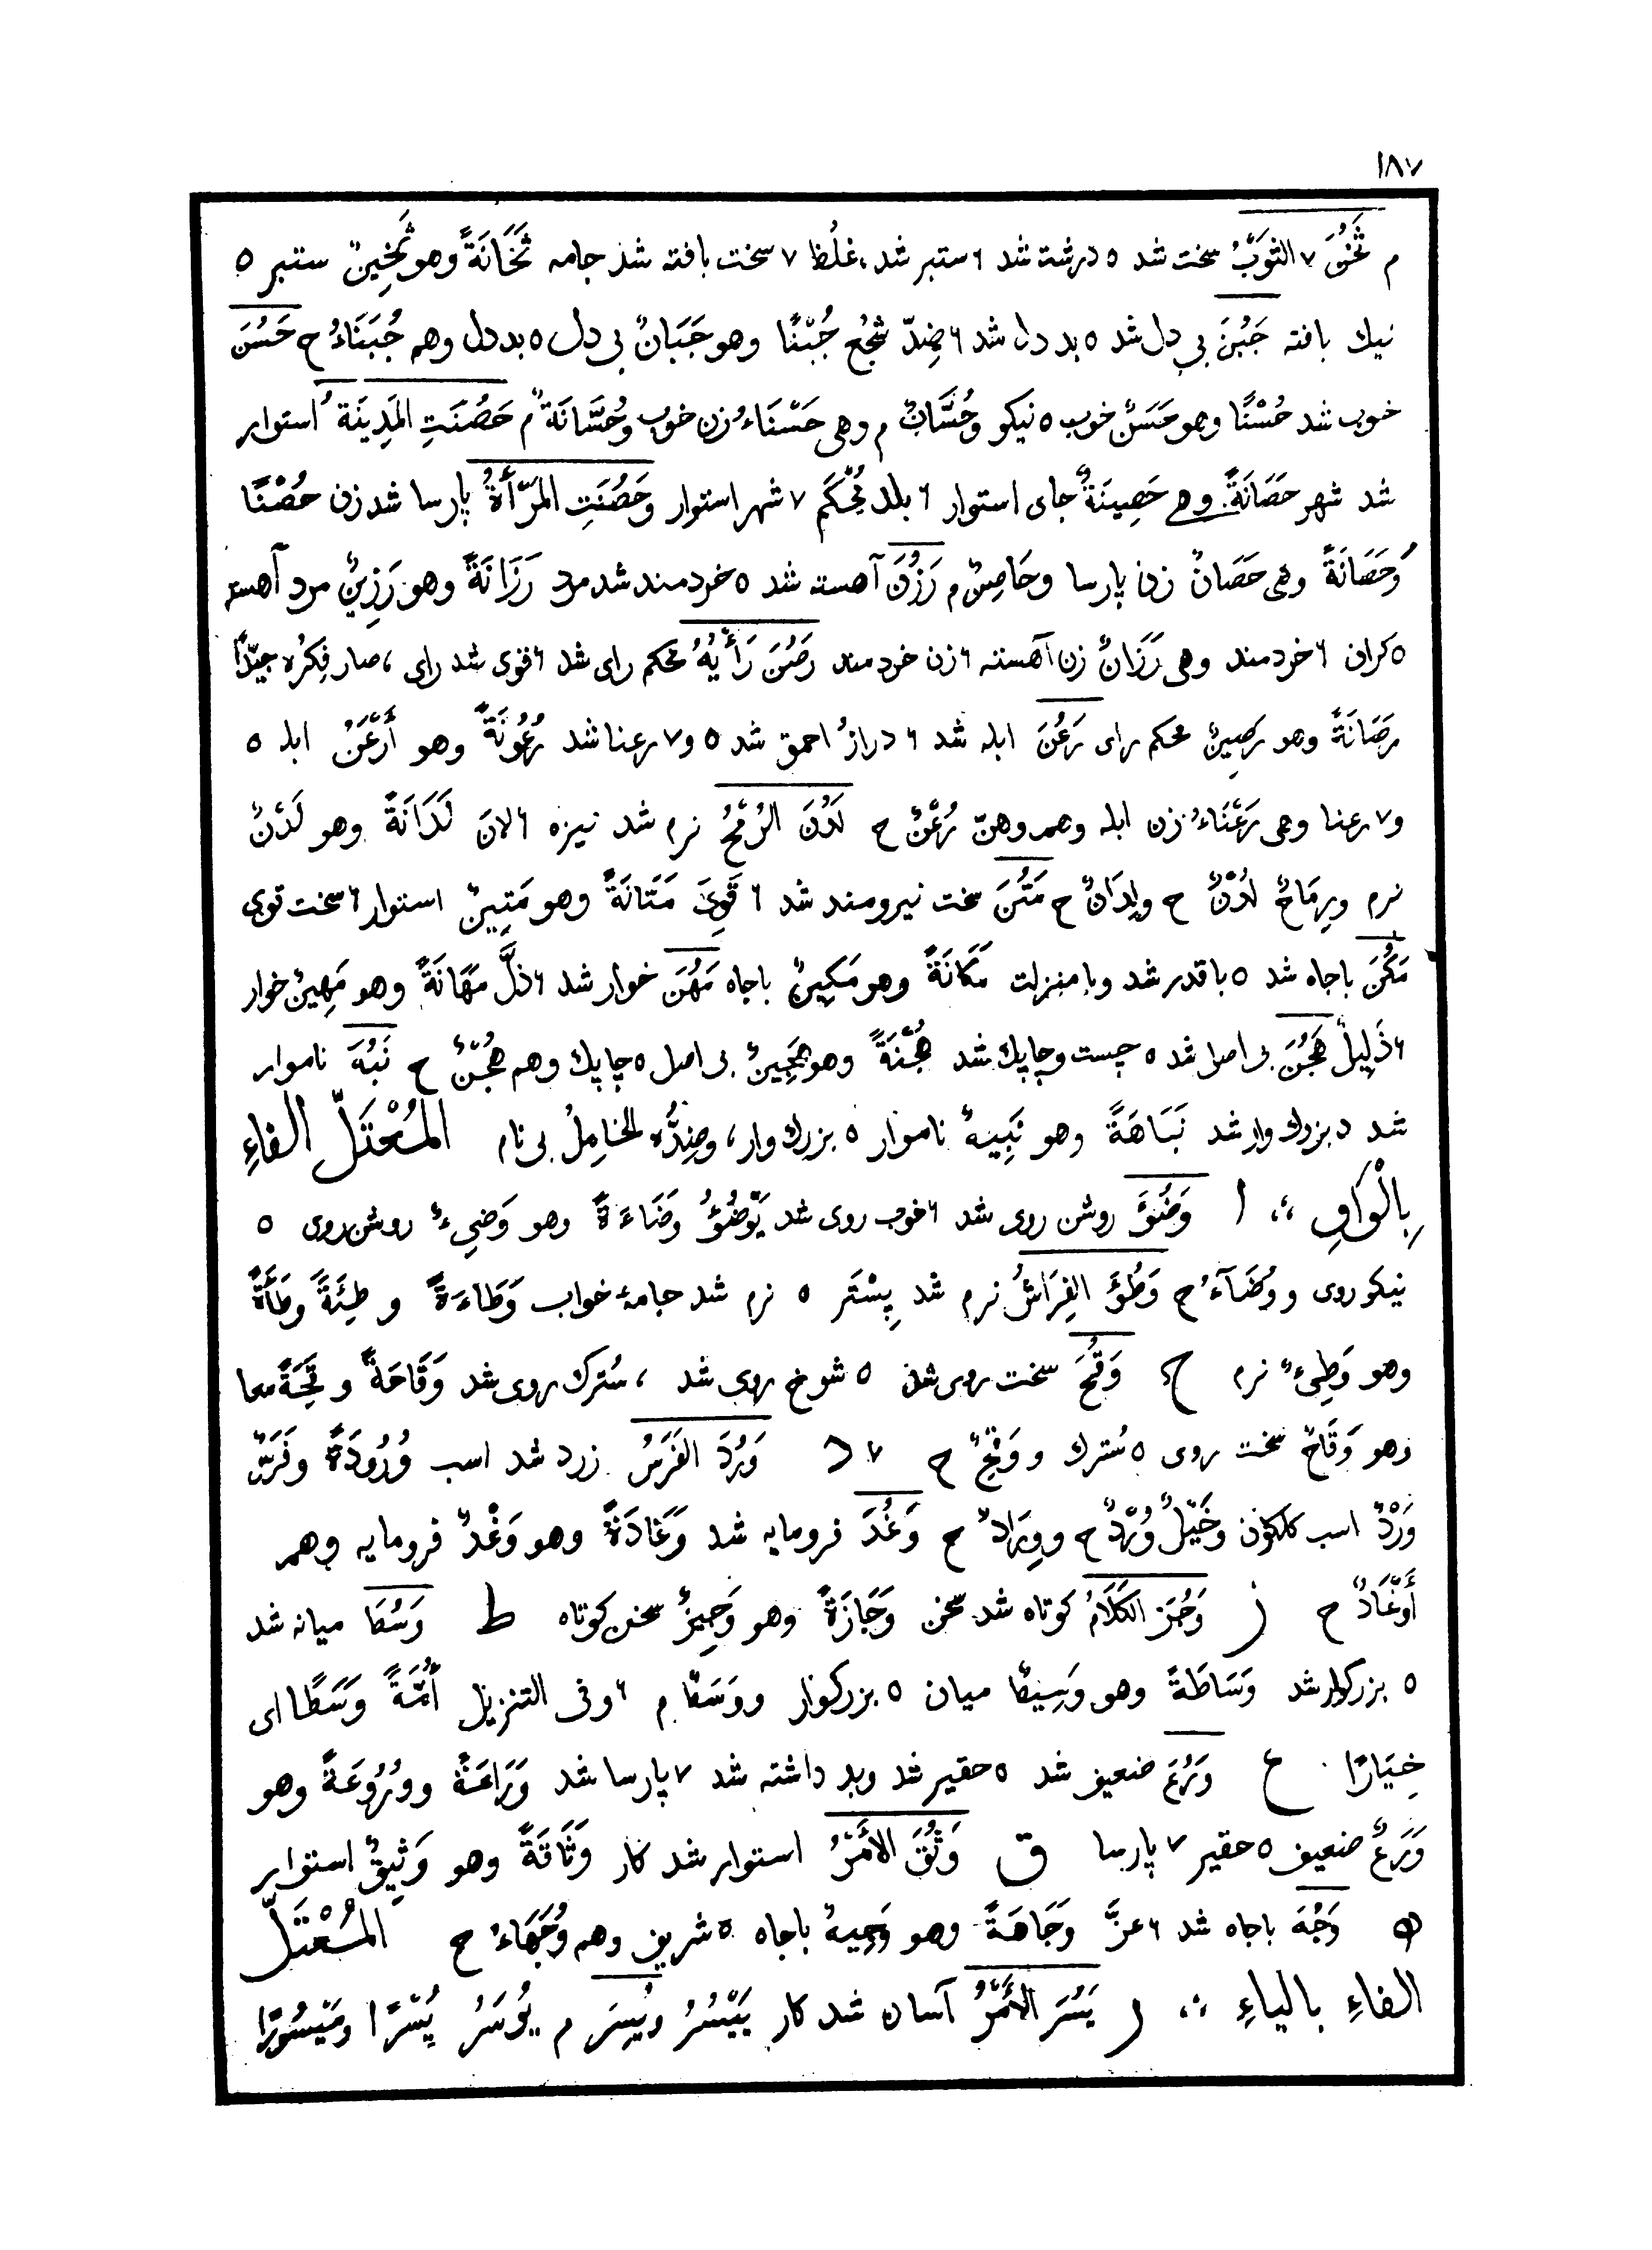 ١٨٧
م ثَخُنَ ٧ الثَوبُ سخت شد ٥ درشت شد ٦ ستبر شد، غلُظ ٧ سخت بافته شد جامه ثَخَانَةً وهو ثَخِينٌ ستبر ٥
نيك بافته جَبُنَ بی دل شد ٥ بد دل شد ٦ ضِدّ شجُع جُبْنًا وهو جَبَانٌ بی دل ٥ بد دل وهم جُبَنَاءُ ح حَسُنَ
خوب شد حُسْنًا وهو حَسَنٌ خوب ٥ نيكو وحُسَّانٌ م وهی حَسْنَاءُ زن خوب وحُسَّانَةٌ م حَصُنَتِ المَدِينَةُ استوار
شد شهر حَصَانَةً وهی حَصِينَةٌ جای استوار ٦ بلد مُحْكَم ٧ شهر استوار وحَصُنَتِ المَرْأَةُ پارسا شد زن حُصْنًا
وَحَصَانَةً وهی حَصَانٌ زن پارسا وحَاصِنٌ م رَزُنَ آهسته شد ٥ خردمند شد مرد رَزَانَةً وهو رَزِينٌ مرد آهسته
٥ كران ٦ خردمند وهی رَزَانٌ زن آهسته ٦ زن خردمند رَصُنَ رَأْيُهُ محكم رای شد ٦ قوی شد رای، صار فِكرُه جيّدًا
رَصَانَةً وهو رَصِينٌ محكم رای رَعُنَ ابله شد ٦ دراز احمق شد ٥ و٧ رعنا شد رُعُونَةً وهو أَرْعَنُ ابله ٥
و٧ رعنا وهی رَعْنَاءُ زن ابله وهم وهنّ رُعْنٌ ح لَدُنَ الرُمْحُ نرم شد نيزه ٦ لانَ لَدَانَةً وهو لَدْنٌ
نرم ورِمَاحٌ لُدْنٌ ح ولِدَانٌ ح مَتُنَ سخت نيرومند شد ٦ قَوِیَ مَتَانَةً وهو مَتِينٌ استوار ٦ سخت توی
مَكُنَ باجاه شد ٥ باقدر شد وبا منزلت مَكَانَةً وهو مَكِينٌ باجاه مَهُنَ خوار شد ٦ ذلَّ مَهَانَةً وهو مَهِينٌ خوار
٦ ذَلِيلٌ هَجُنَ بی اصل شد ٥ چست وچاپك شد هُجْنَةً وهو هَجِينٌ بی اصل ٥ چاپك وهم هُجُنٌ ح نَبُهَ ناموار
شد ٥ بزرك وار شد نَبَاهَةً وهو نَبِيهٌ ناموار ٥ بزرك وار، وضِدُّه الخَامِلُ بی نام المُعْتَلّ الفاءِ
بِالْوَاوِ ؞ ا وَضُؤَ روشن روی شد ٦ خوب روی شد يَوْضُؤُ وَضَاءَةً وهو وَضِیءٌ روشن روی ٥
نيكو روی و وُضَآءُ ح وَطُؤَ الفِرَاشُ نرم شد بِسْتَر ٥ نرم شد جامهٔ خواب وَطَاءَةً و طِئَةً وطَأَةً
وهو وَطِیءٌ نرم ح وَقُحَ سخت روی شد ٥ شوخ روی شد، سُترك روی شد وَقَاحَةً و قِحَةً معا
وهو وَقَاحٌ سخت روی ٥ سُترك و وُقُحٌ ح ٧ د وَرُدَ الفَرَسُ زرد شد اسب وُرُودَةً وفَرَسٌ
وَرْدٌ اسب كلكون وخَيْلٌ وُرْدٌ ح ووِرَادٌ ح وَغُدَ فرومايه شد وَغَادَةً وهو وَغْدٌ فرومايه وهم
أَوْغَادٌ ح ز وَجُزَ الكَلَامُ كوتاه شد سخن وَجَازَةً وهو وَجِيزٌ سخن كوتاه ط وَسُطَ ميانه شد
٥ بزركوار شد وَسَاطَةً وهو وَسِيطٌ ميان ٥ بزركوار ووَسَطٌ م ٦ وفی التنزيل أُمَّةً وَسَطًا ای
خِيَارًا ع وَرُعَ ضعيف شد ٥ حقير شد وبد داشته شد ٧ پارسا شد وَرَاعَةً ووُرُوعَةً وهو
وَرَعٌ ضعيف ٥ حقير ٧ پارسا ق وَثُقَ الأَمْرُ استوار شد كار وَثَاقَةً وهو وَثِيقٌ استوار
ه وَجُهَ باجاه شد ٦ عزَّ وَجَاهَةً وهو وَجِيهٌ باجاه ٥ شريف وهم وُجَهَاءُ ح المُعْتَلّ
الفاءِ بالياءِ ؞ ر يَسُرَ الأَمْرُ آسان شد كار يَيْسُرُ ويُسِرَ م يُوسَرُ يُسْرًا ومَيْسُورًا